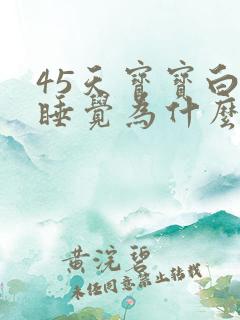 45天寶寶白
睡覺為什麼
黄浣碧
未经同意禁止转载